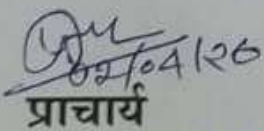 02/04/26
प्राचार्य